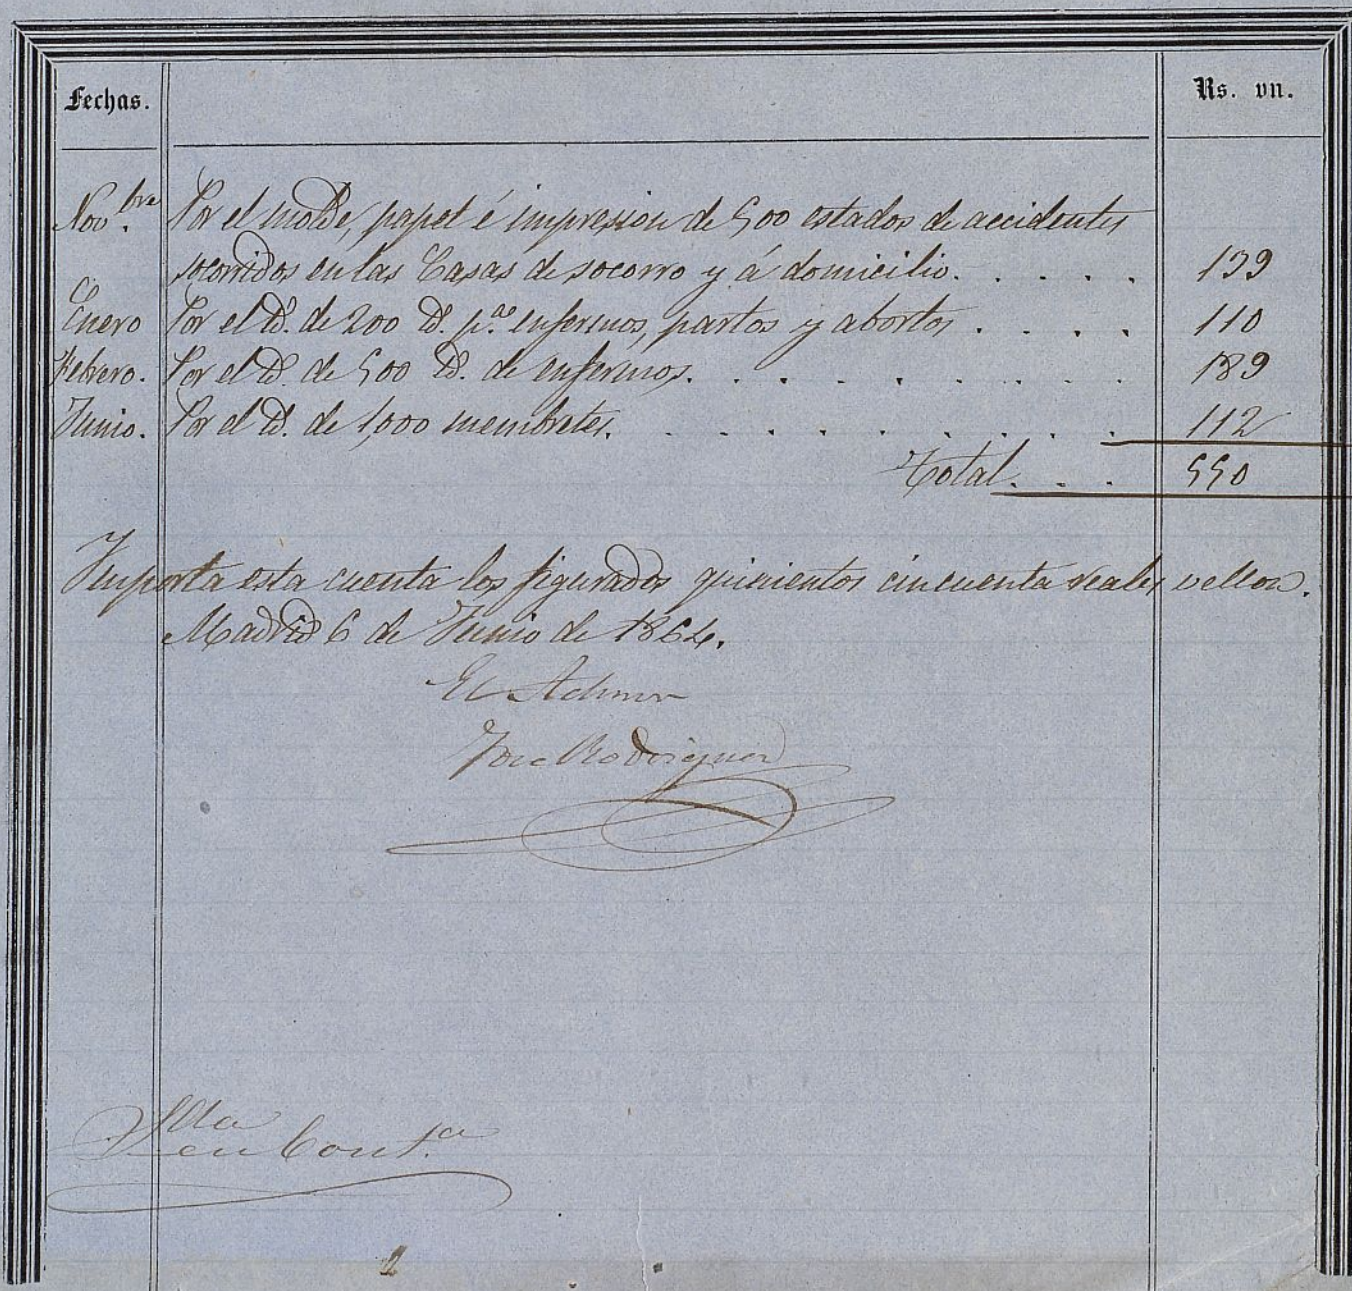 Fechas. Rs. vn.
Nov.bre Por el molde, papel é impresion de 500 estados de accidentes
socorridos en las Casas de socorro y á domicilio. . . . . 139
Enero Por el id. de 200 id. p.ª enfermos, partos y abortos . . . . 110
Febrero. Por el id. de 500 id. de enfermos. . . . . . . . . . 189
Junio. Por el id. de 1,000 membretes. . . . . . . . . . . 112
Total. . . 550
Importa esta cuenta los figurados quinientos cincuenta reales vellon.
Madrid 6 de Junio de 1864.
El Admor
Jose Rodriguez
en Cont.a